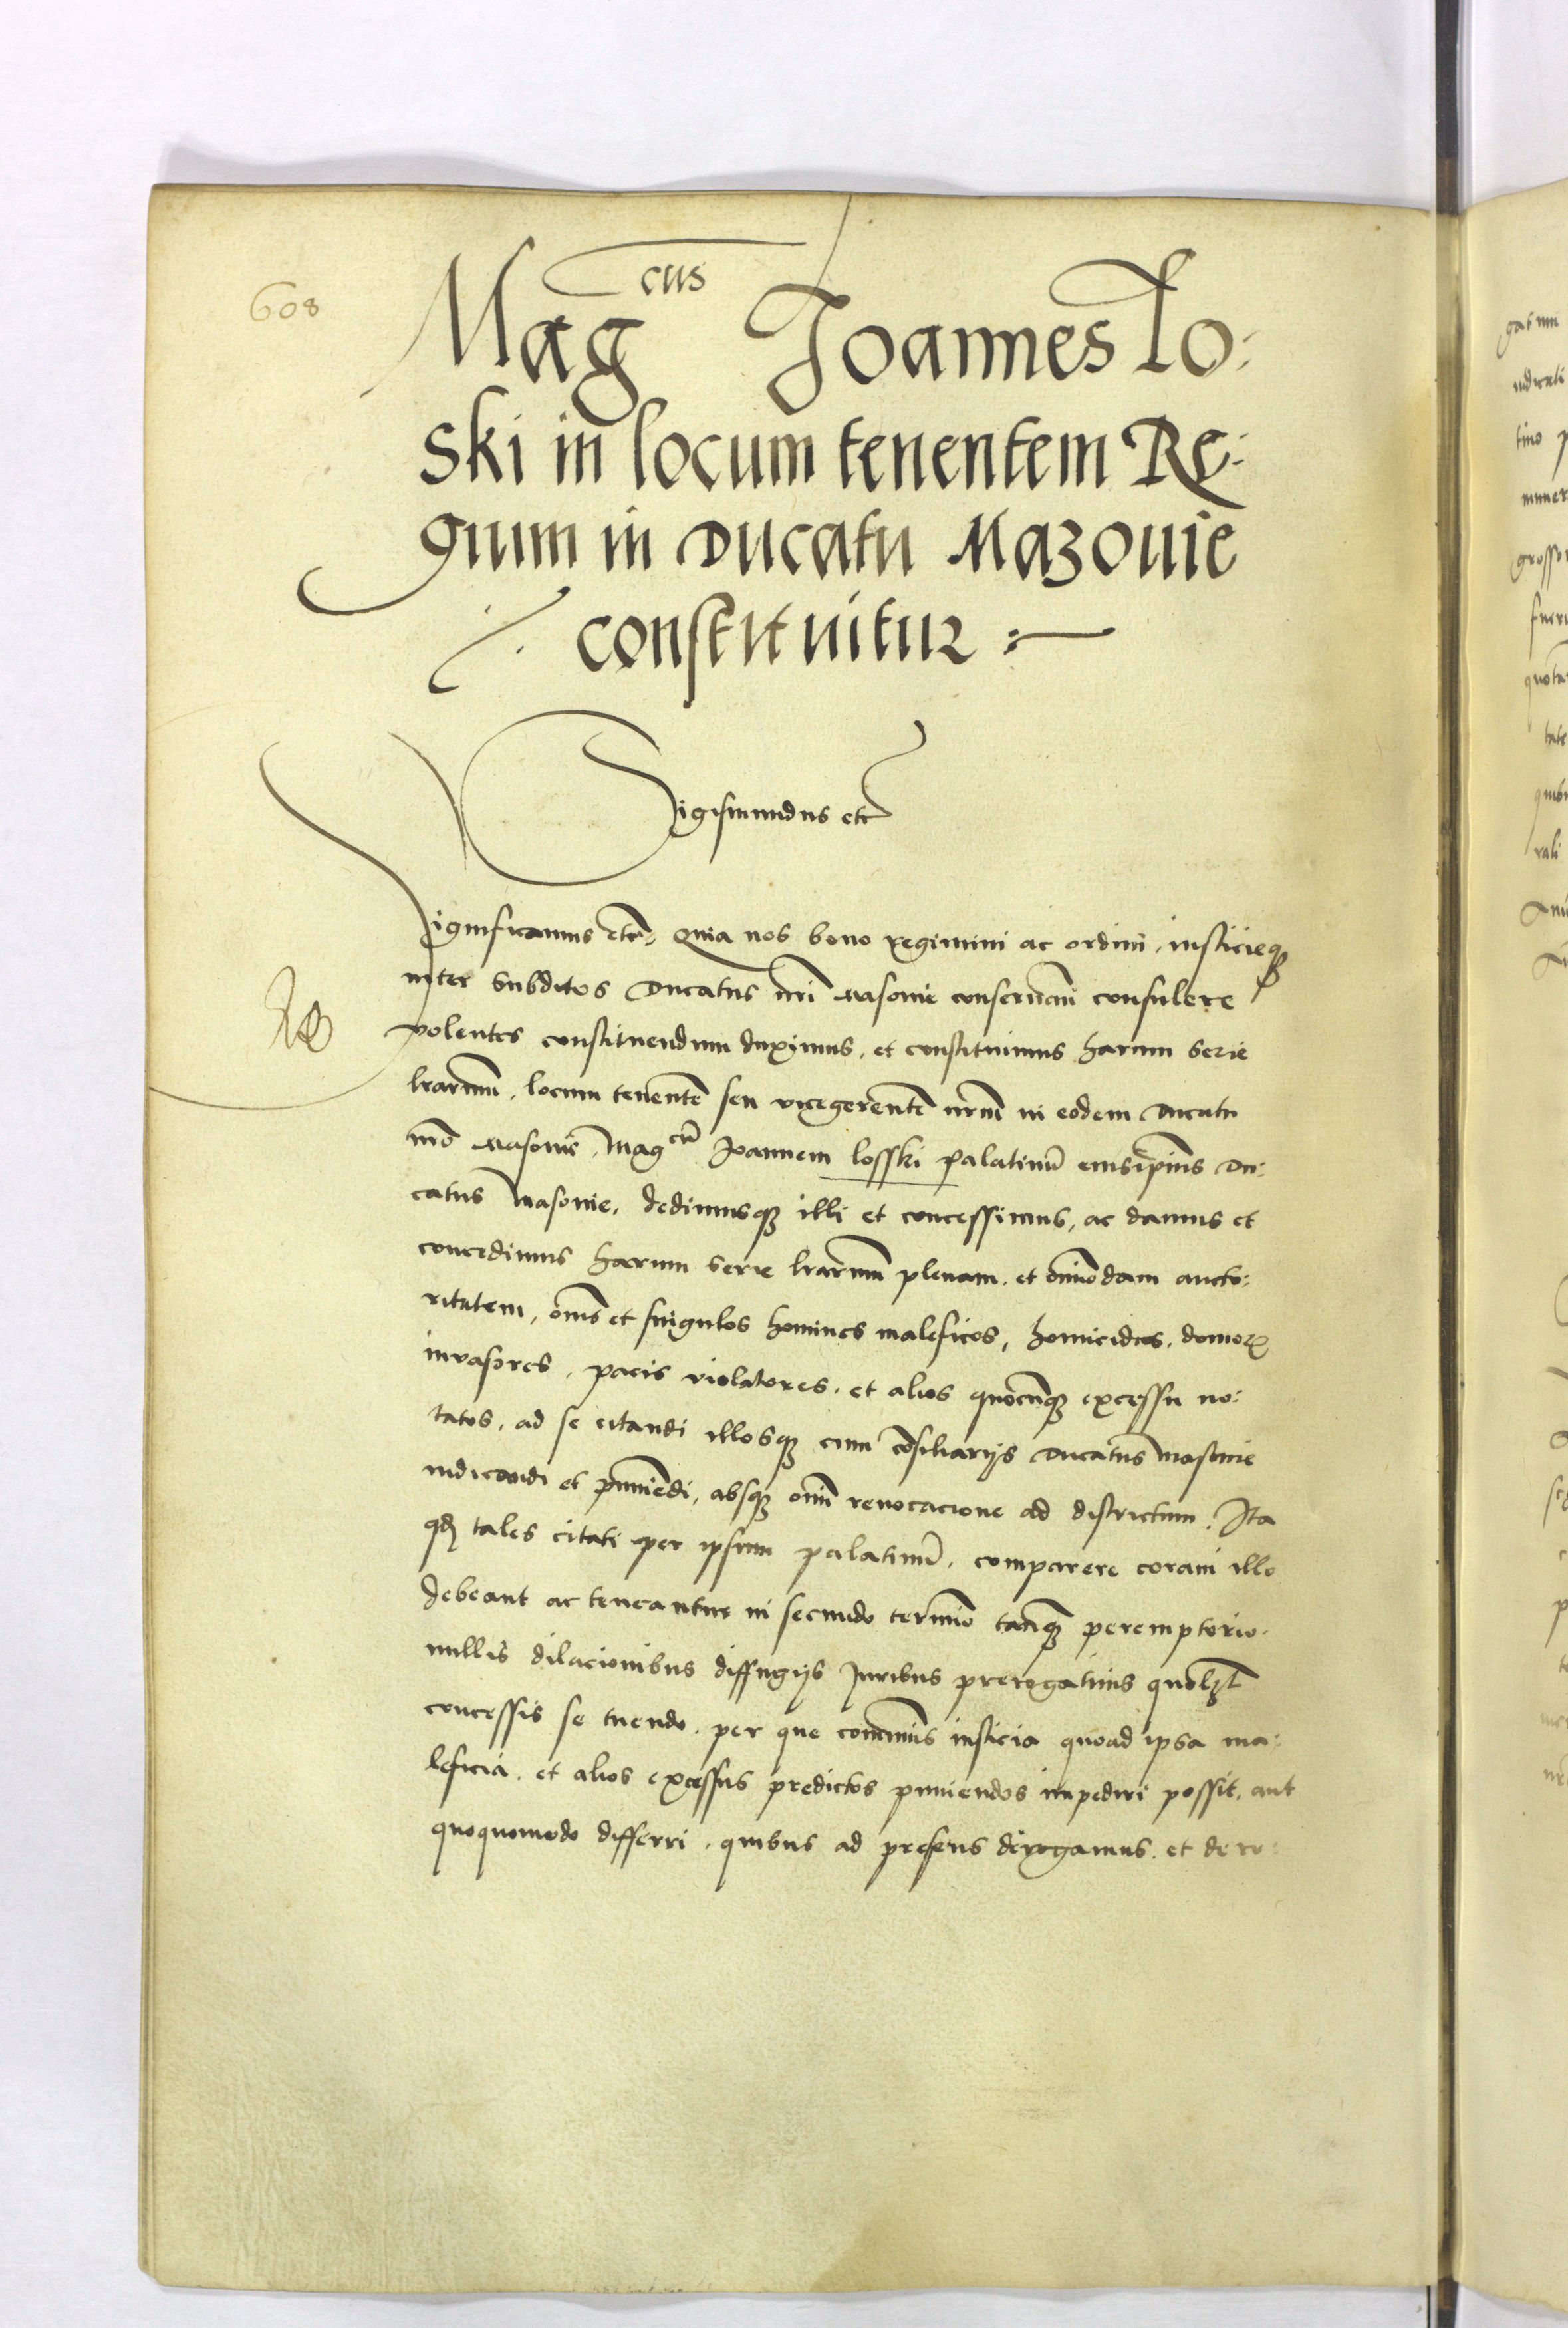 608
Mag cus Joannes Lo:
ski in locum tenentem Re:
gium in Ducatu Mazouie
constituitur
Sigismundus etc
Significamus etc. Quia nos bono regimini ac ordini, iusticieq3
inter subditos Ducatus nri Masouie conseruan̄ consulere
volentes constituendum duximus, et constituimus harum serie
lrarum̄, locum tenentē seu vicegerentē nrūm in eodem Ducatu
nrō Masouie, Mag cū Joannem losski palatinū eiusdpmus Du:
catus Masouie, dedimusq3 illi et concessimus, ac damus et
concedimus harum serie lrarum̄ plenam, et om̄imodam aucto:
ritatem, om̄s et singulos homines maleficos, homicidas, domorꝝ
inuasores, pacis violatores, et alios quocunq3 excessu no:
tatos, ad se citandi illosq3 cum cōsiliarijs Ducatus Masouie
iudicandi et puniēdi, absq3 om̄i reuocacione ad districtum. Ita
qd tales citati per ipsum palatinū, comparere coram illo
debeant ac teneantur in secundo termino tanq3 peremptorio,
nullis dilacionibus diffugijs Juribus prerogatiuis quolȝt
concessis se tuendo, per que com̄unis iusticia quoad ipsa ma:
leficia, et alios excessus predictos puniendos impediri possit, aut
quoquomodo differri, quibus ad presens derogamus, et dero: